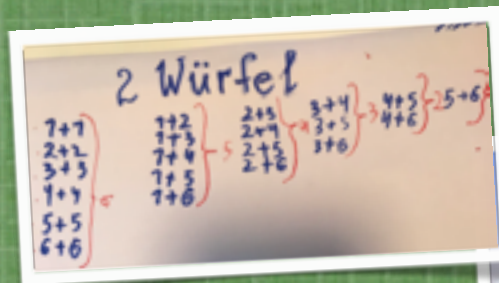 2 Würfel
1+1
2+2
3+3
4+4
5+5
6+6
6
1+2
1+3
1+4
1+5
1+6
5
2+3
2+4
2+5
2+6
4
3+4
3+5
3+6
3
4+5
4+6
2
5+6